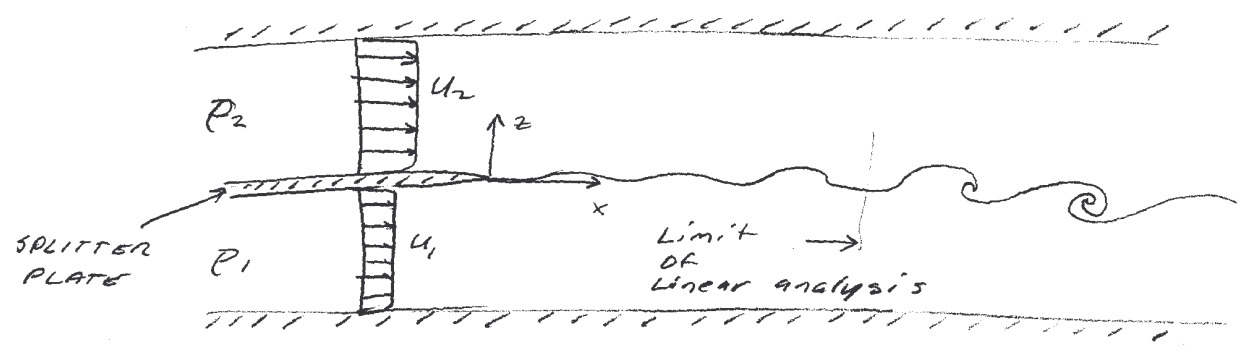 ρ2
U2
z
x
SPLITTER
PLATE
ρ1
U1
Limit
OF
Linear analysis